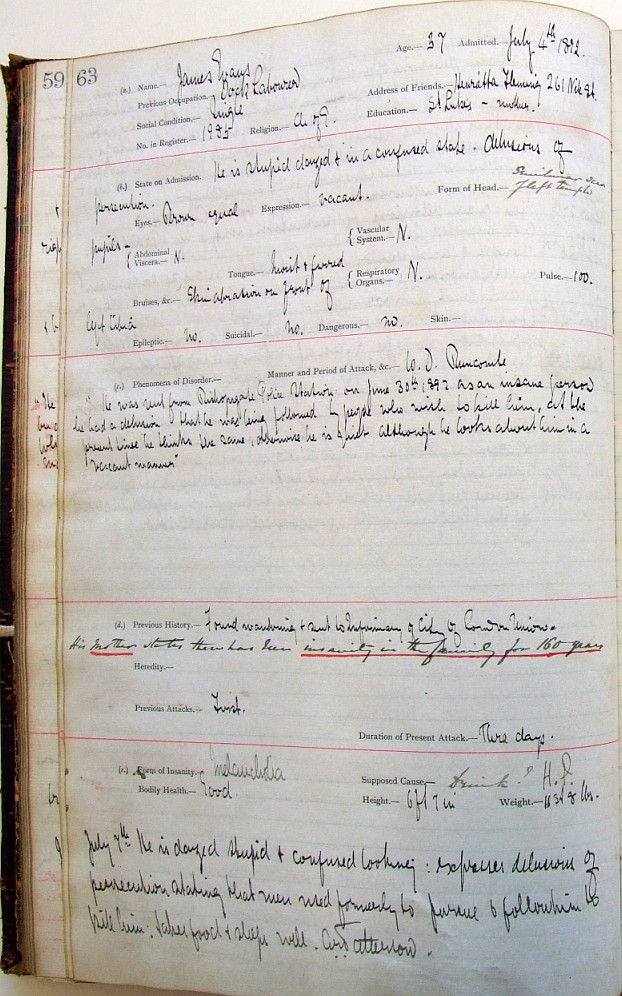 59 63
Age.— 37 Admitted.— July 4th 1892.
(a.) Name.— James Evans
Previous Occupation.— Dock Labourer
Address of Friends.— Henrietta Fleming 261 Nile St.
Social Condition.— Single
Education.— St Lukes – mother.
No. in Register.— 1985 Religion.— Ch. of E.
(b.) State on Admission.— He is stupid dazed & in a confused state. delusions of
persecution.
Eyes.— Brown equal Expression.— vacant. Form of Head.—
of left temple
pupils –
{ Abdominal Viscera.— N. { Vascular System.— N.
Tongue.— Moist & furred { Respiratory Organs.— N. Pulse.— 100.
Bruises, &c.— Skin abrasion on front of
left tibia
Epileptic.— No. Suicidal.— No. Dangerous.— No. Skin.—
Manner and Period of Attack, &c.— W. D. Buncombe
(c.) Phenomena of Disorder.—
"He was sent from Bishopsgate Police Station on June 30th 1892 as an insane person
he had a delusion that he was being followed by people who wish to kill him, at the
present time he thinks the same, otherwise he is quiet although he looks about him in a
vacant manner"
(d.) Previous History.— Found wandering & sent to Infirmary of City of London Union.
His Mother states there has been insanity in the family for 160 years
Heredity.—
Previous Attacks.— First.
Duration of Present Attack.— Three days.
(e.) Form of Insanity.— Melancholia
Supposed Cause.— Drink? H.P.
Bodily Health.— Good.
Height.— 6ft 7 in Weight.— 11 st 8 lbs.
July 7th He is dazed stupid & confused looking : expresses delusions of
persecution stating that men used formerly to pursue & follow him to
kill him : takes food & sleeps well.